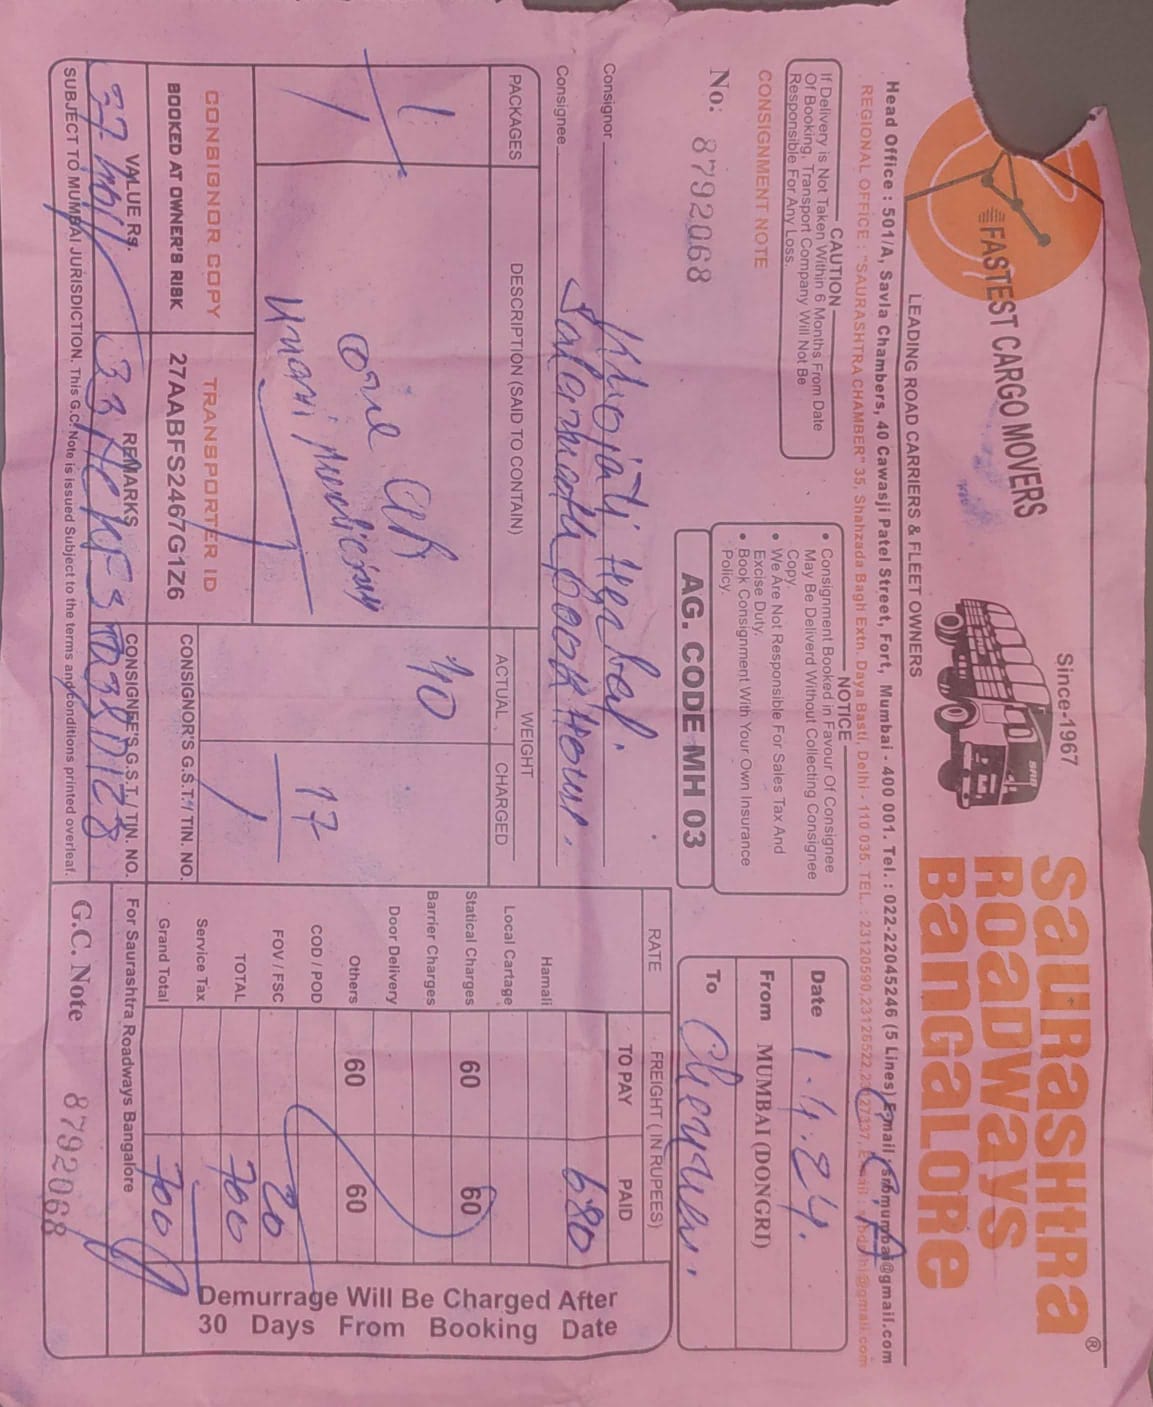 FASTEST CARGO MOVERS
Since-1967
SAURASHTRA
ROADWAYS
BANGALORE
®
LEADING ROAD CARRIERS & FLEET OWNERS
Head Office : 501/A, Savla Chambers, 40 Cawasji Patel Street, Fort, Mumbai - 400 001. Tel. : 022-22045246 (5 Lines) Email : srbmumbai@gmail.com
REGIONAL OFFICE : "SAURASHTRA CHAMBER" 35, Shahzada Bagh Extn. Daya Basti, Delhi - 110 035. TEL. : 23120590,23126522
CAUTION
If Delivery is Not Taken Within 6 Months From Date
Of Booking, Transport Company Will Not Be
Responsible For Any Loss.
NOTICE
• Consignment Booked in Favour Of Consignee
May Be Deliverd Without Collecting Consignee
Copy.
• We Are Not Responsible For Sales Tax And
Excise Duty.
• Book Consignment With Your Own Insurance
Policy.
Date 1.4.24.
From MUMBAI (DONGRI)
To Chennai.
CONSIGNMENT NOTE
No: 8792068
AG. CODE MH 03
Consignor Khojati Herbal.
Consignee Salermath Book House.
PACKAGES
DESCRIPTION (SAID TO CONTAIN)
WEIGHT
ACTUAL
CHARGED
1
one
unani medicine
10
17
RATE
FREIGHT (IN RUPEES)
TO PAY
PAID
Hamali 680
Local Cartage
Statical Charges 60 60
Barrier Charges
Door Delivery
Others 60 60
COD / POD
FOV / FSC 20
TOTAL 700
Service Tax
Grand Total 700
Demurrage Will Be Charged After
30 Days From Booking Date
CONSIGNOR COPY
BOOKED AT OWNER'S RISK
TRANSPORTER ID
27AABFS2467G1Z6
CONSIGNOR'S G.S.T. / TIN. NO.
VALUE Rs.
REMARKS
CONSIGNEE'S G.S.T. / TIN. NO.
For Saurashtra Roadways Bangalore
SUBJECT TO MUMBAI JURISDICTION. This G.C. Note is issued Subject to the terms and conditions printed overleaf.
G.C. Note 8792068